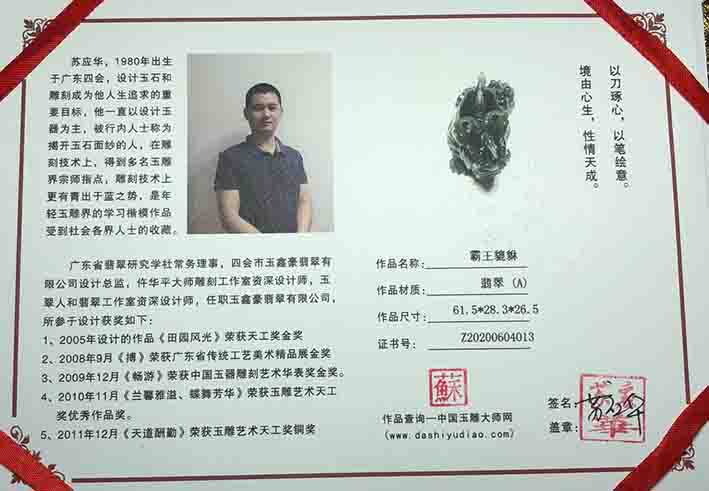 苏应华，1980年出生
于广东四会，设计玉石和
雕刻成为他人生追求的重
要目标，他一直以设计玉
器为主，被行内人士称为
揭开玉石面纱的人，在雕
刻技术上，得到多名玉雕
界宗师指点，雕刻技术上
更有青出于蓝之势，是年
轻玉雕界的学习楷模作品
受到社会各界人士的收藏。
广东省翡翠研究学社常务理事，四会市玉鑫豪翡翠有
限公司设计总监，仵华平大师雕刻工作室资深设计师，玉
翠人和翡翠工作室资深设计师，任职玉鑫豪翡翠有限公司，
所参于设计获奖如下：
1、2005年设计的作品《田园风光》荣获天工奖金奖
2、2008年9月《搏》荣获广东省传统工艺美术精品展金奖
3、2009年12月《畅游》荣获中国玉器雕刻艺术华表奖金奖。
4、2010年11月《兰馨雅溢、蝶舞芳华》荣获玉雕艺术天工
奖优秀作品奖。
5、2011年12月《天道酬勤》荣获玉雕艺术天工奖铜奖
以刀琢心，以笔绘意。
境由心生，性情天成。
作品名称：霸王貔貅
作品材质：翡翠 (A)
作品尺寸：61.5*28.3*26.5
证书号：Z20200604013
蘇
作品查询一中国玉雕大师网
(www.dashiyudiao.com)
签名：
盖章：